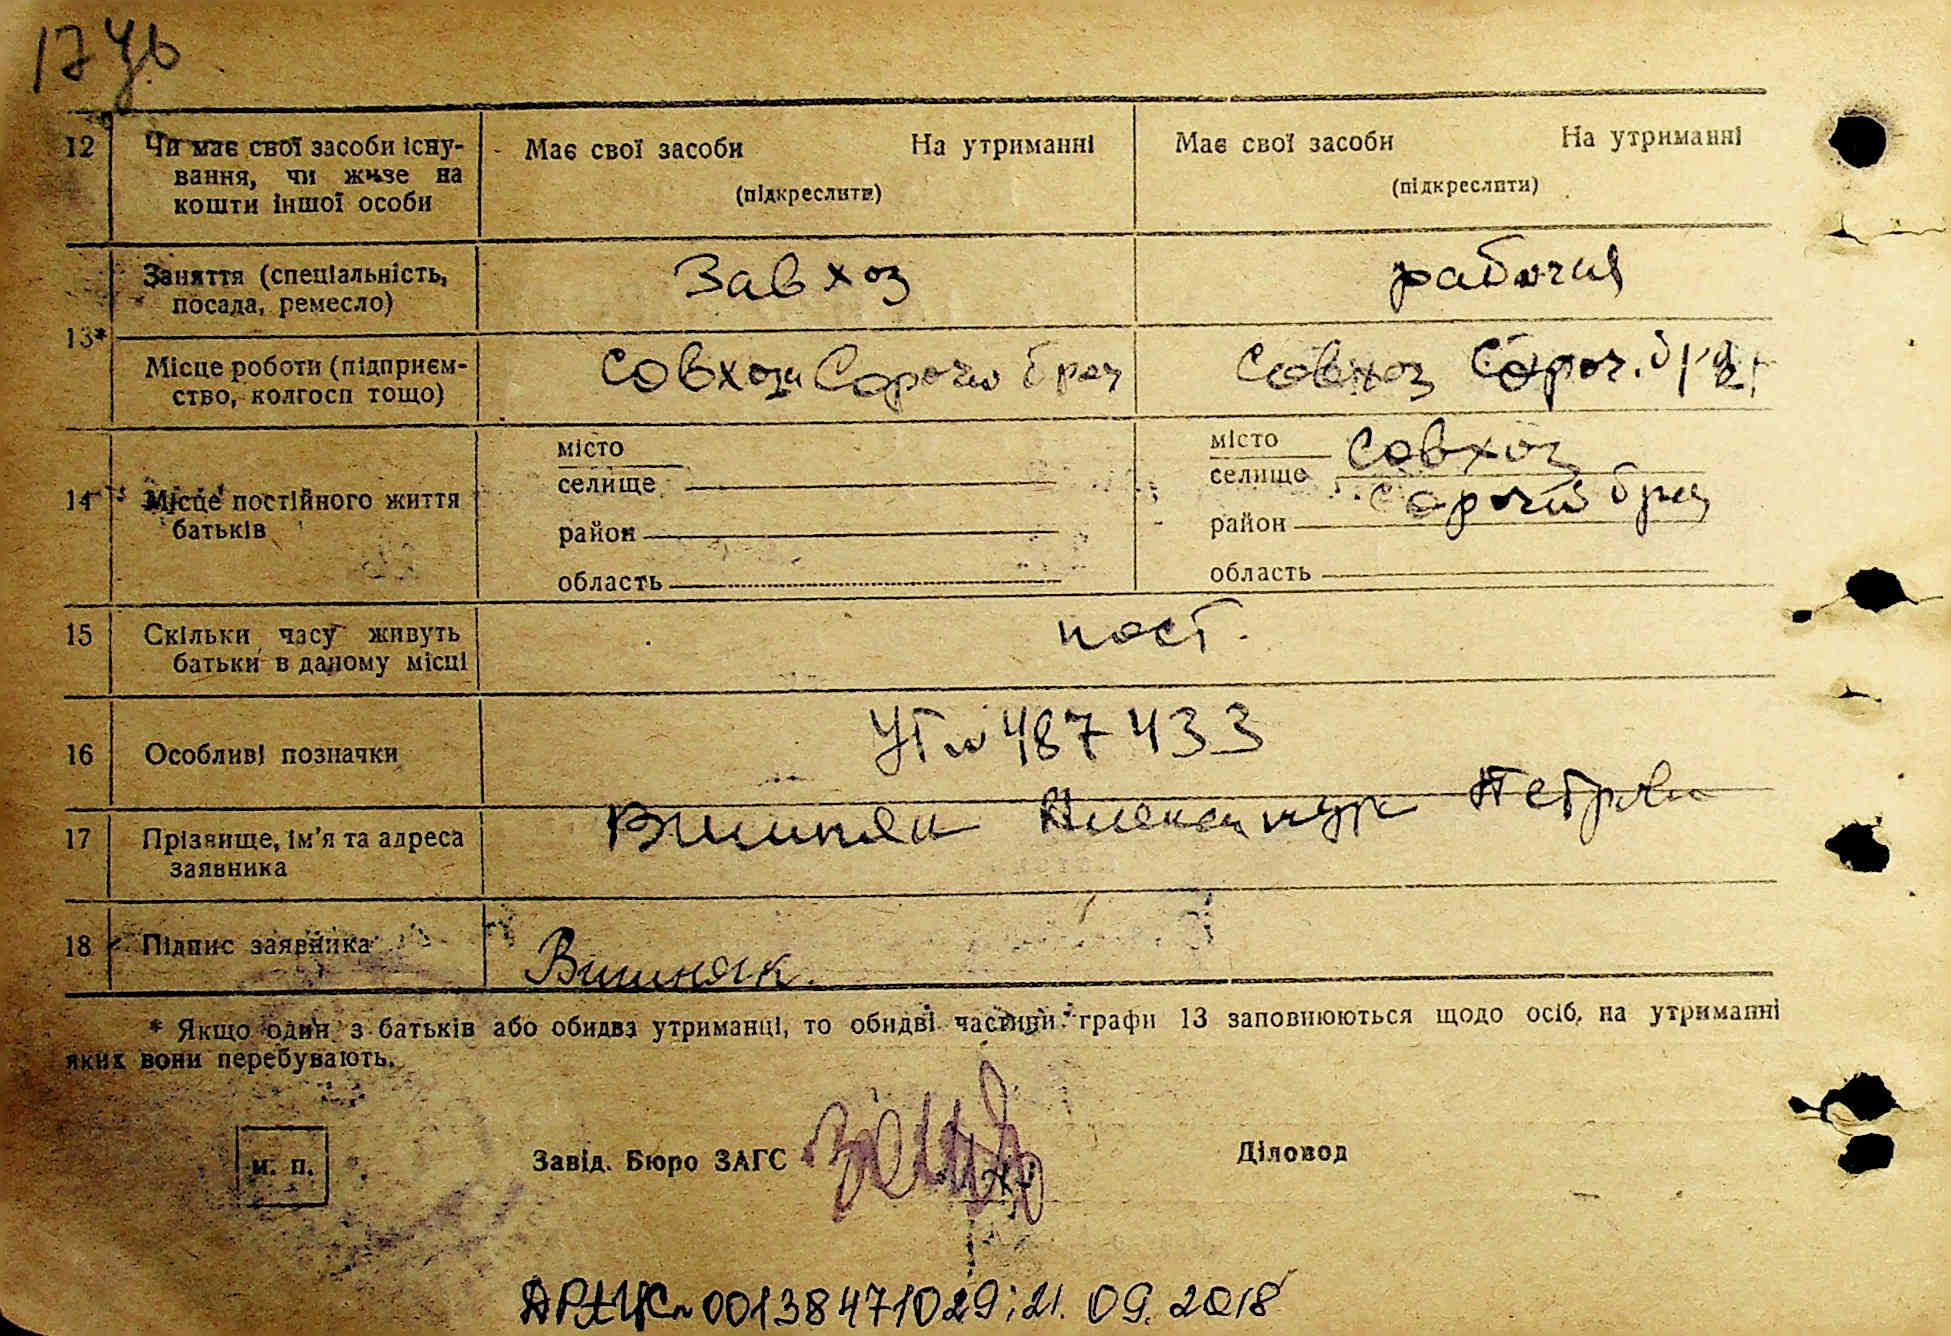 17
12 Чи має свої засоби існу- Має свої засоби На утриманні Має свої засоби На утриманні
вання, чи живе на (підкреслити) (підкреслити)
кошти іншої особи
Заняття (спеціальність, Завхоз рабочая
посада, ремесло)
13*
Місце роботи (підприєм- совхоз Сороч Совхоз Сороч.
ство, колгосп тощо)
місто місто совхоз
селище селище
14 Місце постійного життя
батьків район район
область область
15 Скільки часу живуть пост.
батьки в даному місці
16 Особливі позначки № 487433
17 Прізвище, ім'я та адреса Вишняк Александр Петрович
заявника
18 Підпис заявника Вишняк.
* Якщо один з батьків або обидва утриманці, то обидві частини графи 13 заповнюються щодо осіб, на утриманні
яких вони перебувають.
м. п. Завід. Бюро ЗАГС Діловод
№ 00138471029; 21.09.2018